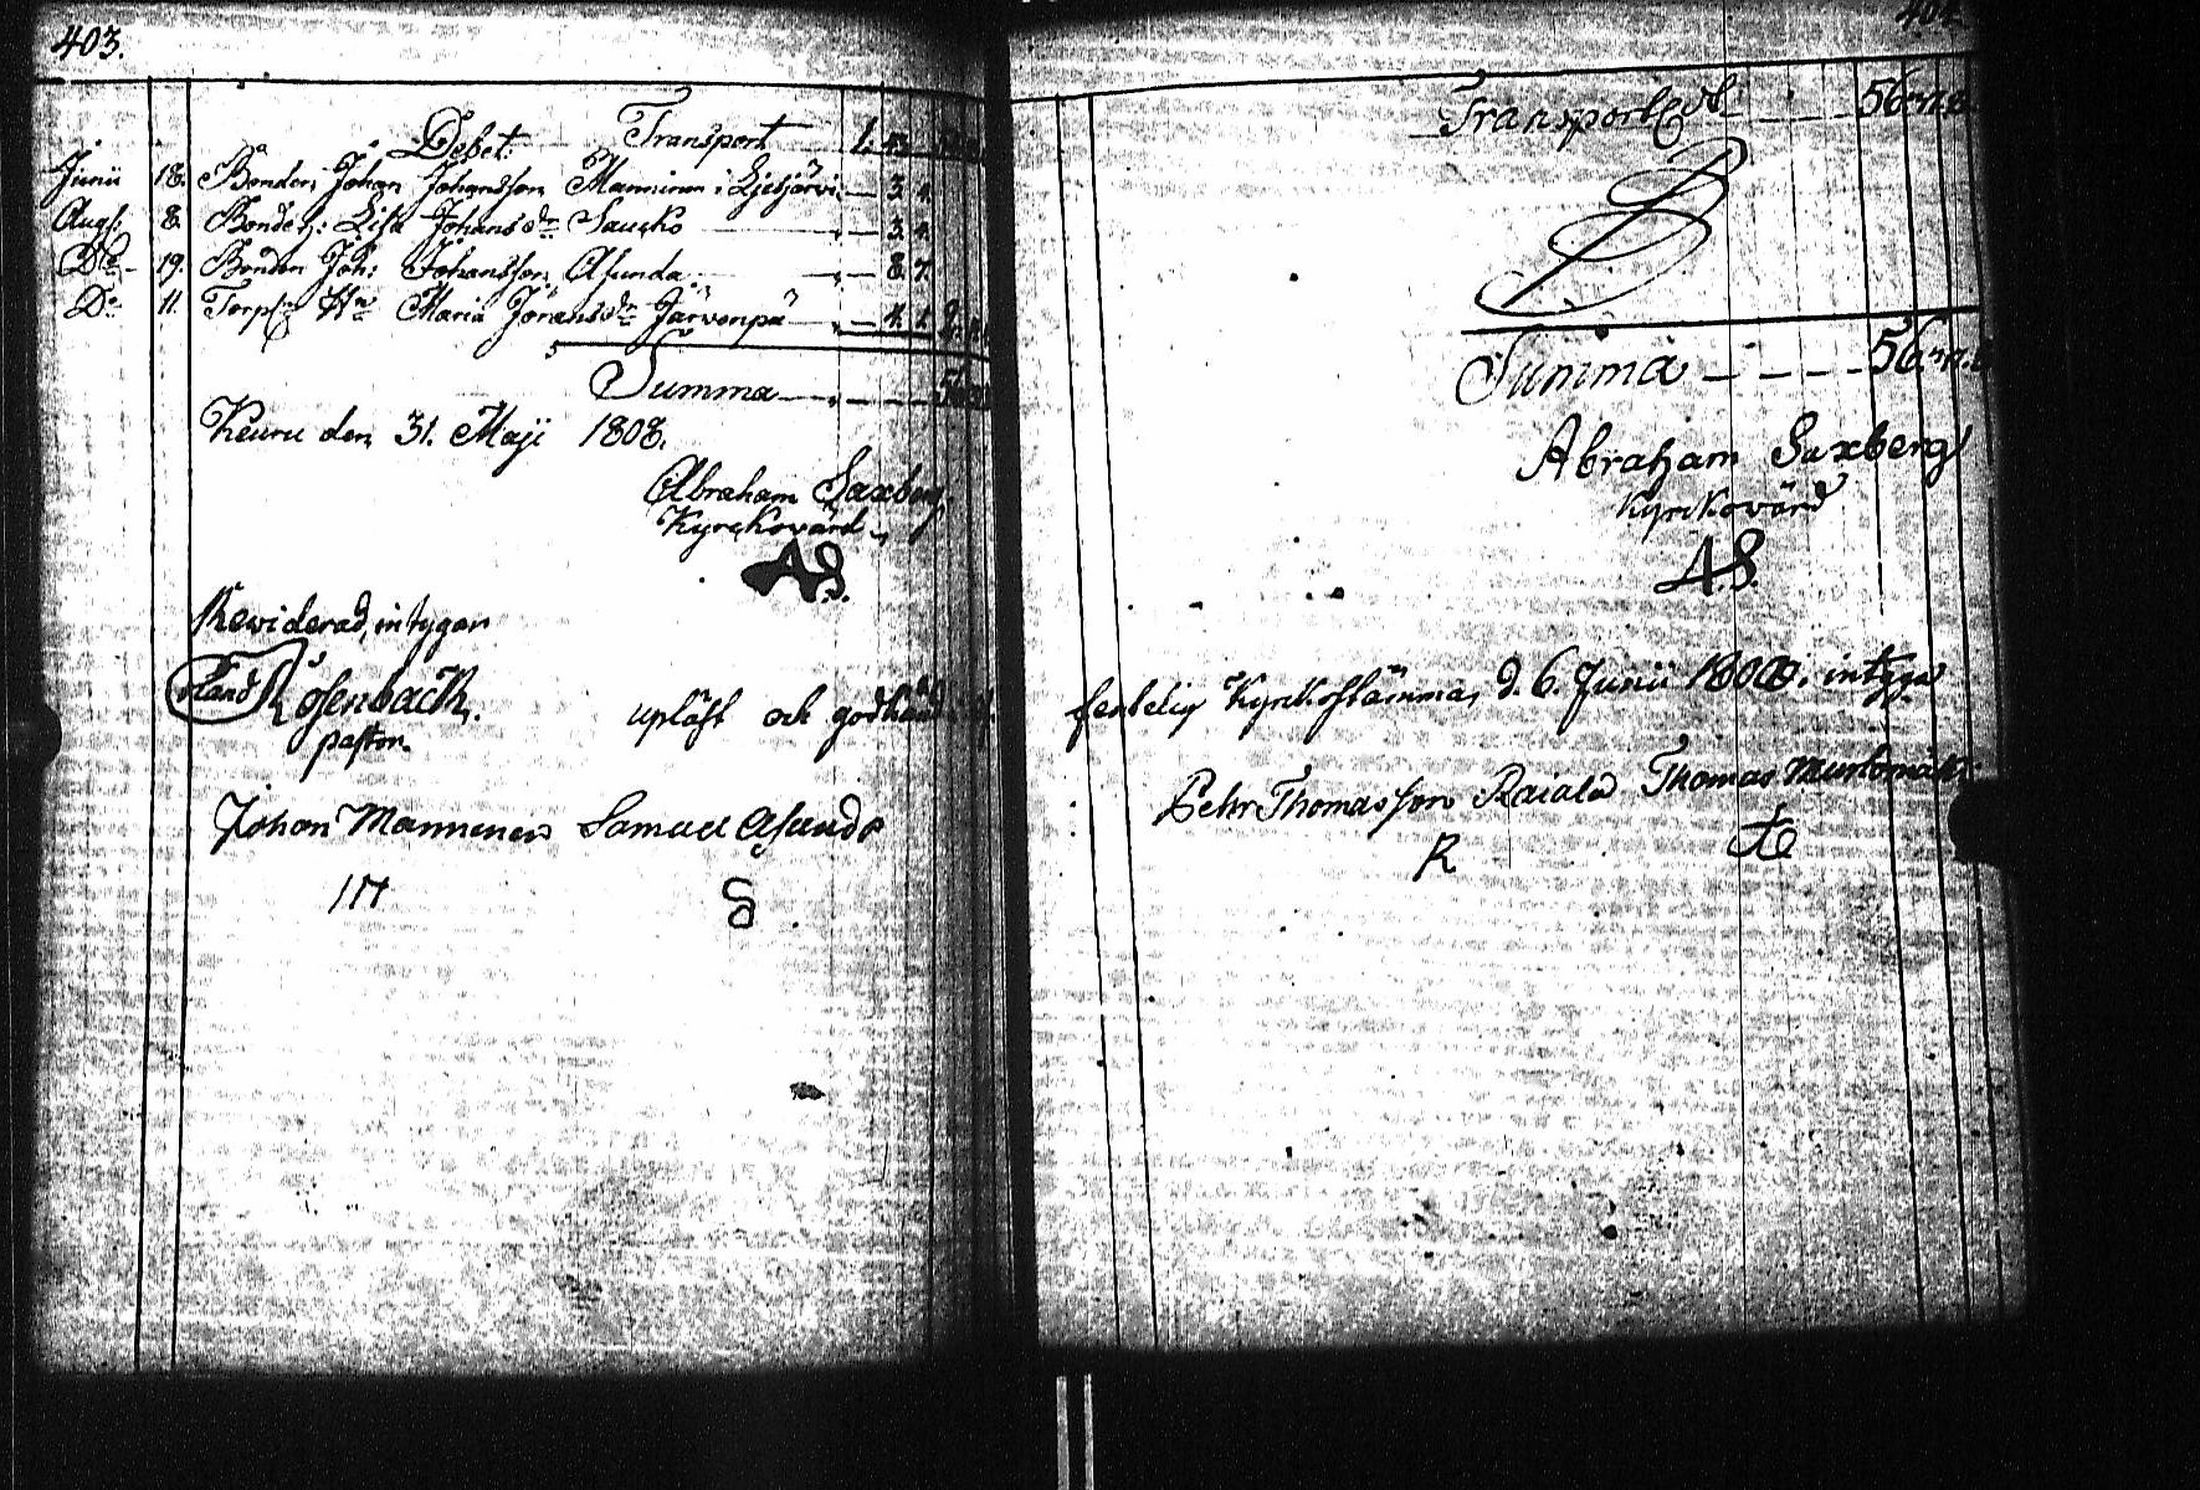 403.
Debet. Transport
Junii 18. Bonden Johan Johansson Manninen i Liesjärvi 3. 4.
Augs: 8. Bonded:r Lisa Johansdr Saucko 3. 4.
Do 19. Bonden Joh: Johansson Asunda 8. 7.
Do 11. Torp Hu Maria Jöransdr Järvenpä 4. 1.
Summa
Keuru den 31. Maji 1808.
Abraham Saxberg
Kyrckovärd
A.S.
Rewiderad, intygar
Rosenback.
pastor.
upläst och godkänd
Johan Mannenen Samuel Asunda
IM
S
Transport
56.
Summa 56.
Abraham Saxberg
Kyrckovärd
A.S.
fentelig Kyrckostämma, d. 6. Junii 1808. intyga
Pehr Thomasson Raiala Thomas
R